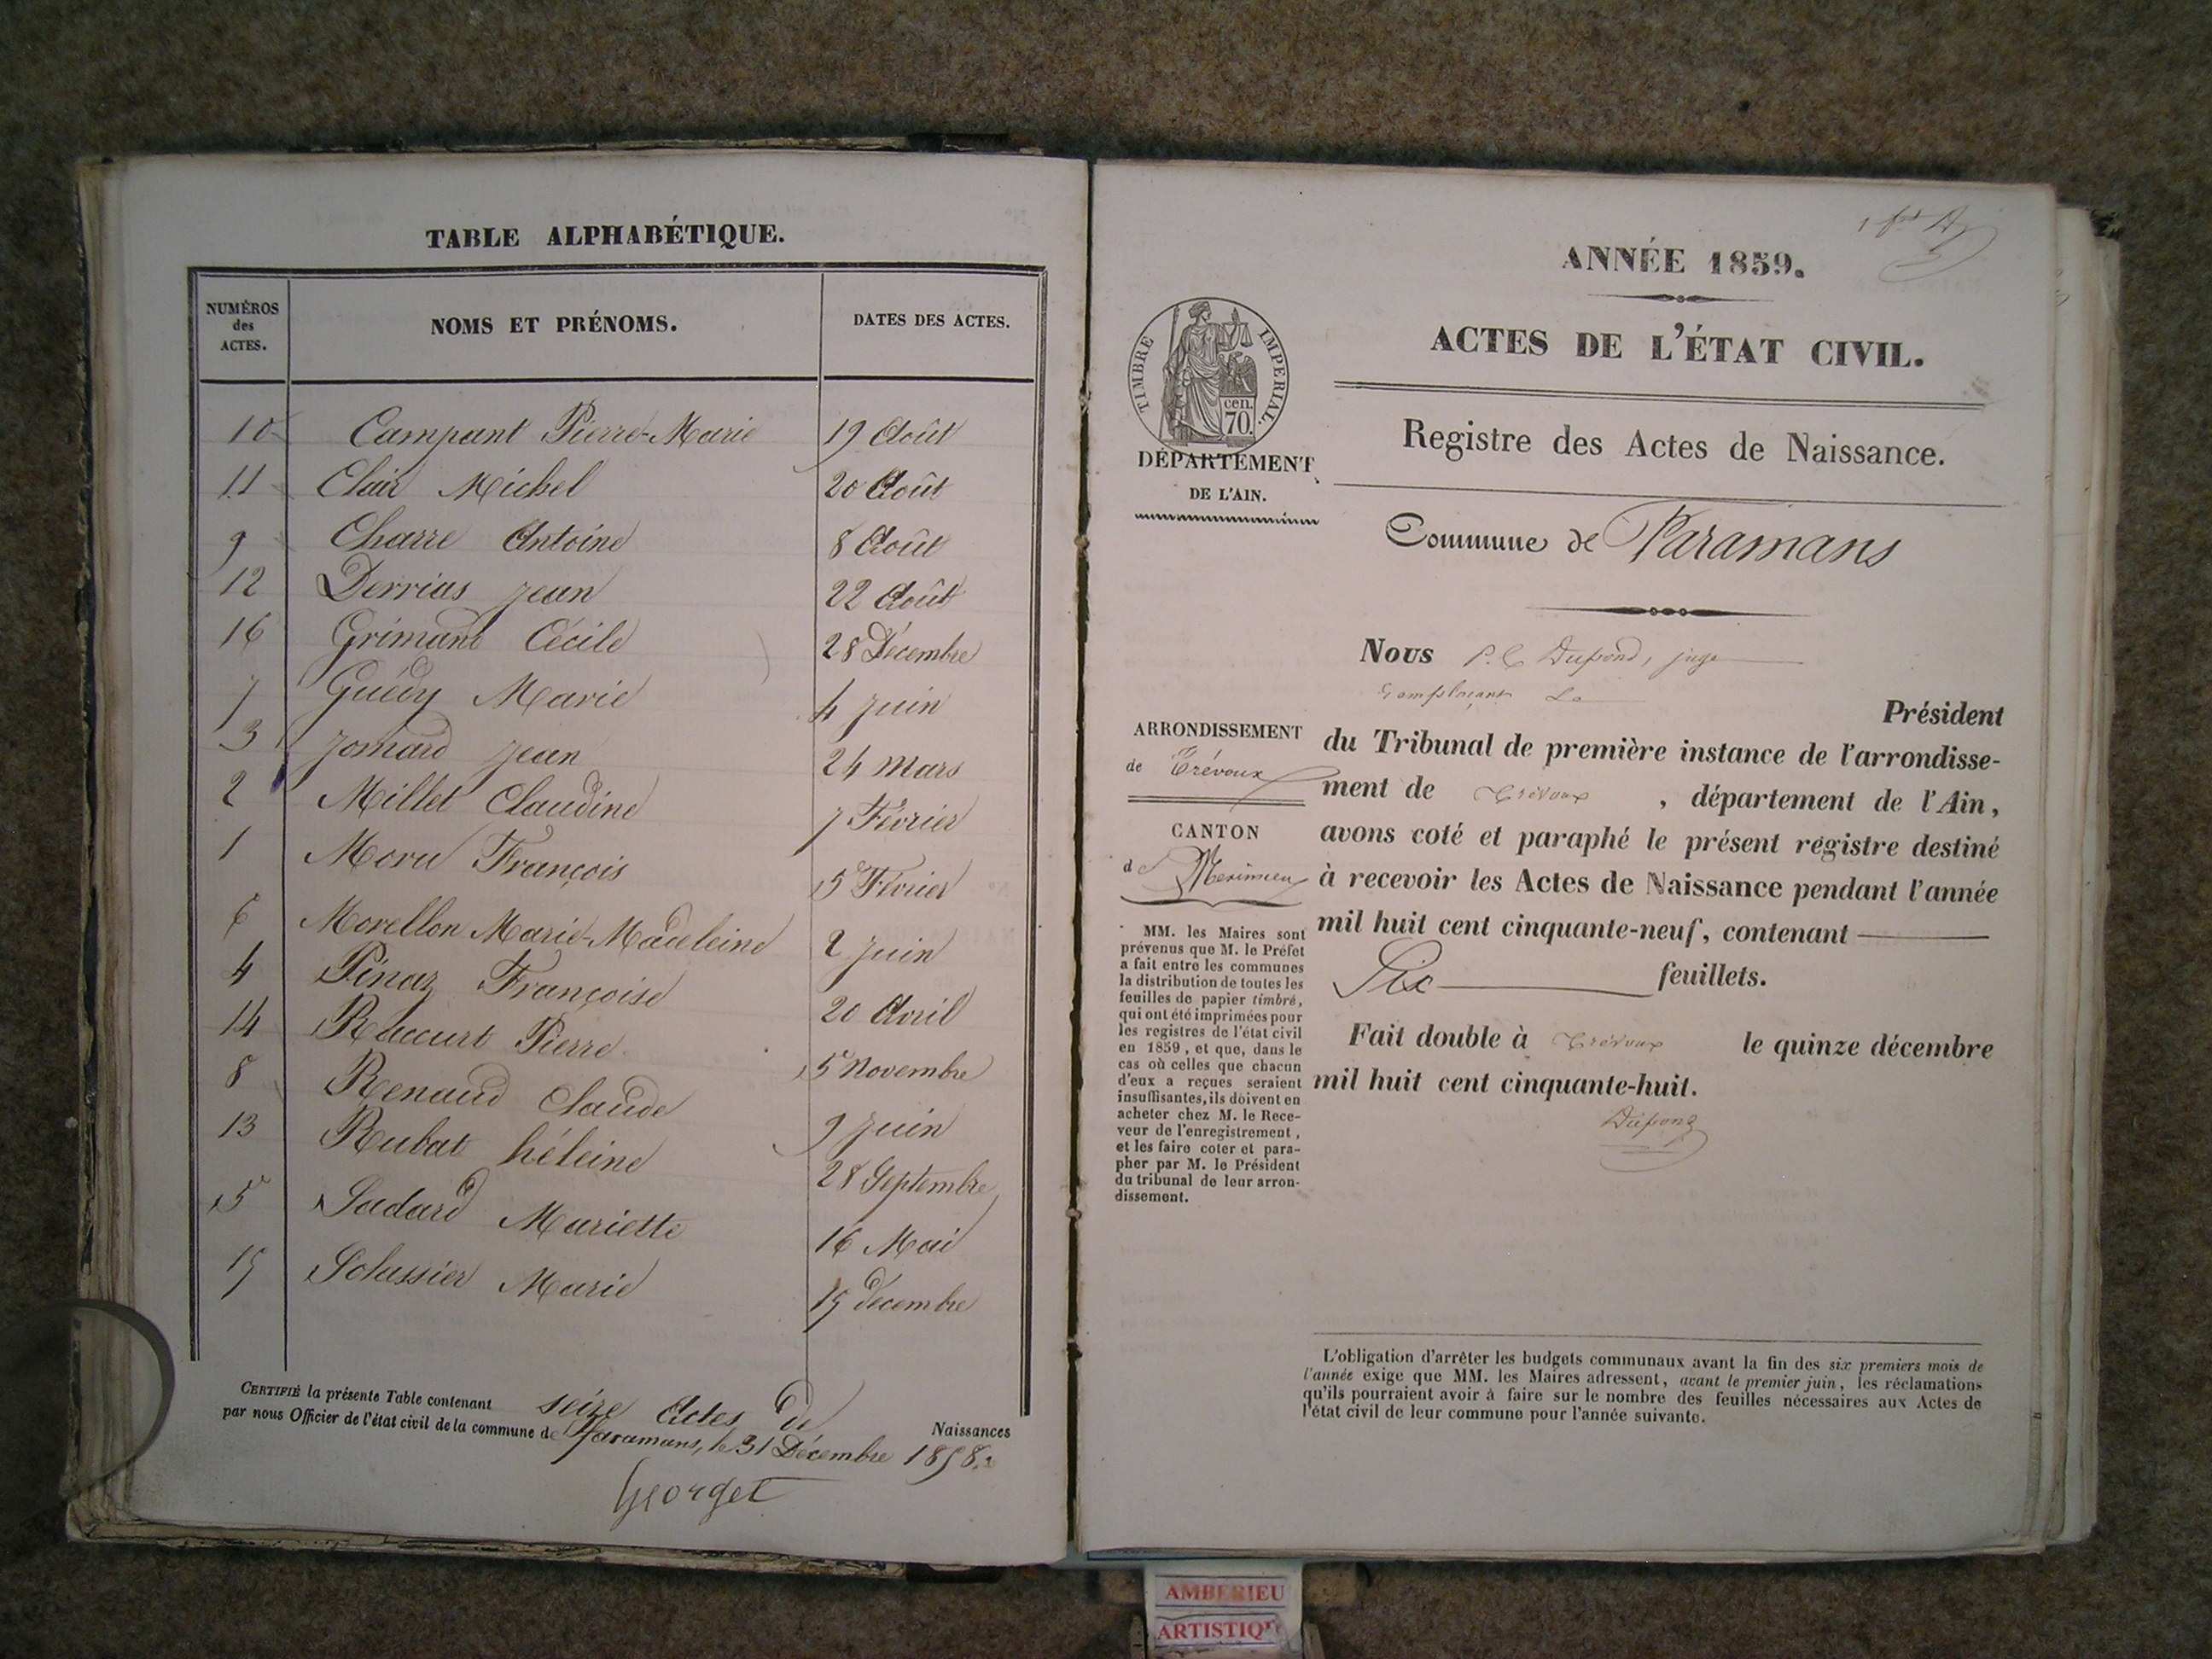 TABLE ALPHABÉTIQUE.
NUMÉROS des ACTES.
NOMS ET PRÉNOMS.
DATES DES ACTES.
10 Campant Pierre-Marie 19 Août
11 Clair Michel 20 Août
9 Charre Antoine 8 Août
12 Derrias jean 22 Août
16 Grimand Cécile 28 Décembre
7 Guédy Marie 4 juin
3 jomard jean 24 mars
2 Millet Claudine 7 Février
1 Morel François 5 Février
6 Morellon Marie-Madeleine 2 juin
4 Pinaz Françoise 20 Avril
14 Raccurt Pierre 5 Novembre
8 Renaud Claude 9 juin
13 Rubat héleine 28 Septembre
5 Sadard Mariette 16 Mai
15 Solassier Marie 15 décembre
CERTIFIÉ la présente Table contenant seize Actes de Naissances
par nous Officier de l'état civil de la commune de faramans, le 31 Décembre 1858.
Georget
ANNÉE 1859.
TIMBRE IMPERIAL.
cen. 70.
ACTES DE L'ÉTAT CIVIL.
Registre des Actes de Naissance.
DÉPARTEMENT
DE L'AIN.
Commune de Faramans
Nous P. C. Dupond, juge
remplaçant Le
Président
du Tribunal de première instance de l'arrondisse-
ment de Trévoux, département de l'Ain,
avons coté et paraphé le présent régistre destiné
à recevoir les Actes de Naissance pendant l'année
mil huit cent cinquante-neuf, contenant
Six feuillets.
Fait double à Trévoux le quinze décembre
mil huit cent cinquante-huit.
Dupond
ARRONDISSEMENT
de Trévoux
CANTON
de Meximieux
MM. les Maires sont
prévenus que M. le Préfet
a fait entre les communes
la distribution de toutes les
feuilles de papier timbré,
qui ont été imprimées pour
les registres de l'état civil
en 1859, et que, dans le
cas où celles que chacun
d'eux a reçues seraient
insuffisantes, ils doivent en
acheter chez M. le Rece-
veur de l'enregistrement,
et les faire coter et para-
pher par M. le Président
du tribunal de leur arron-
dissement.
L'obligation d'arrêter les budgets communaux avant la fin des six premiers mois de
l'année exige que MM. les Maires adressent, avant le premier juin, les réclamations
qu'ils pourraient avoir à faire sur le nombre des feuilles nécessaires aux Actes de
l'état civil de leur commune pour l'année suivante.
AMBERIEU
ARTISTIQU